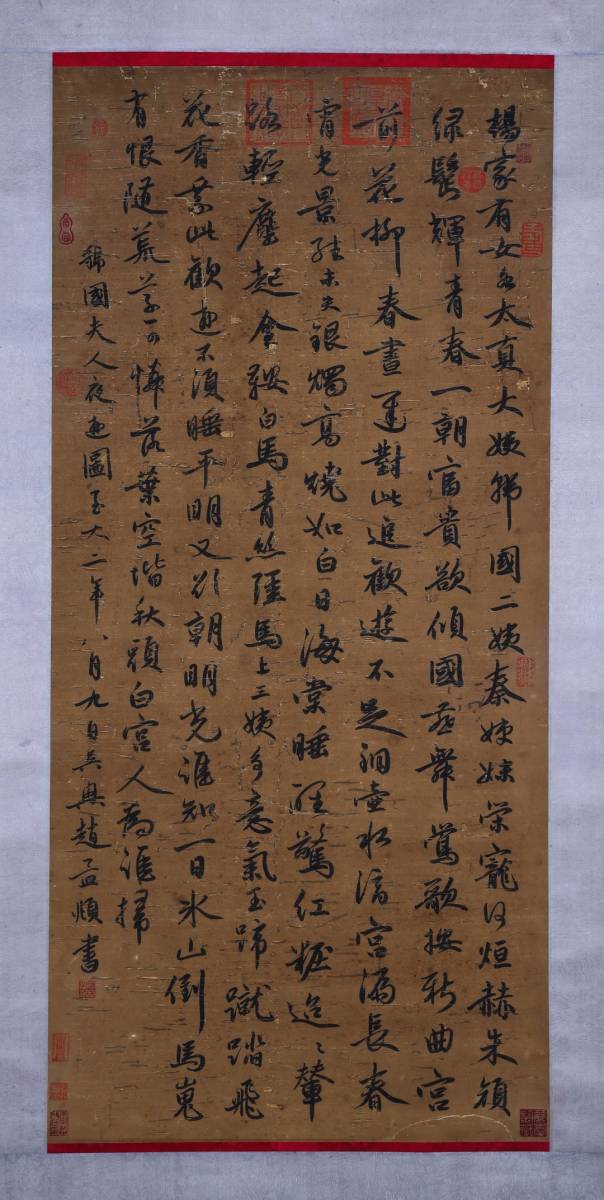 楊家有女名太真大姨虢國二姨秦姊妹榮寵何烜赫朱顔
緑鬢輝青春一朝富貴欲傾國燕舞鶯歌按新曲宮
前花柳春晝遲對此追歡遊不足銅壺水滴宮漏長春
宵光景殊未央銀燭高燒如白日海棠睡醒驚紅粧迢〻輦
路輕塵起金鞍白馬青絲韁馬上三姨多意氣玉蹄蹴踏飛
花香樂此歡遊不須睡平明又欲朝明光誰知一日冰山倒馬嵬
有恨隨荒草可憐落葉空堦秋頭白宮人為誰掃
虢國夫人夜遊圖至大二年八月九日吳興趙孟頫書